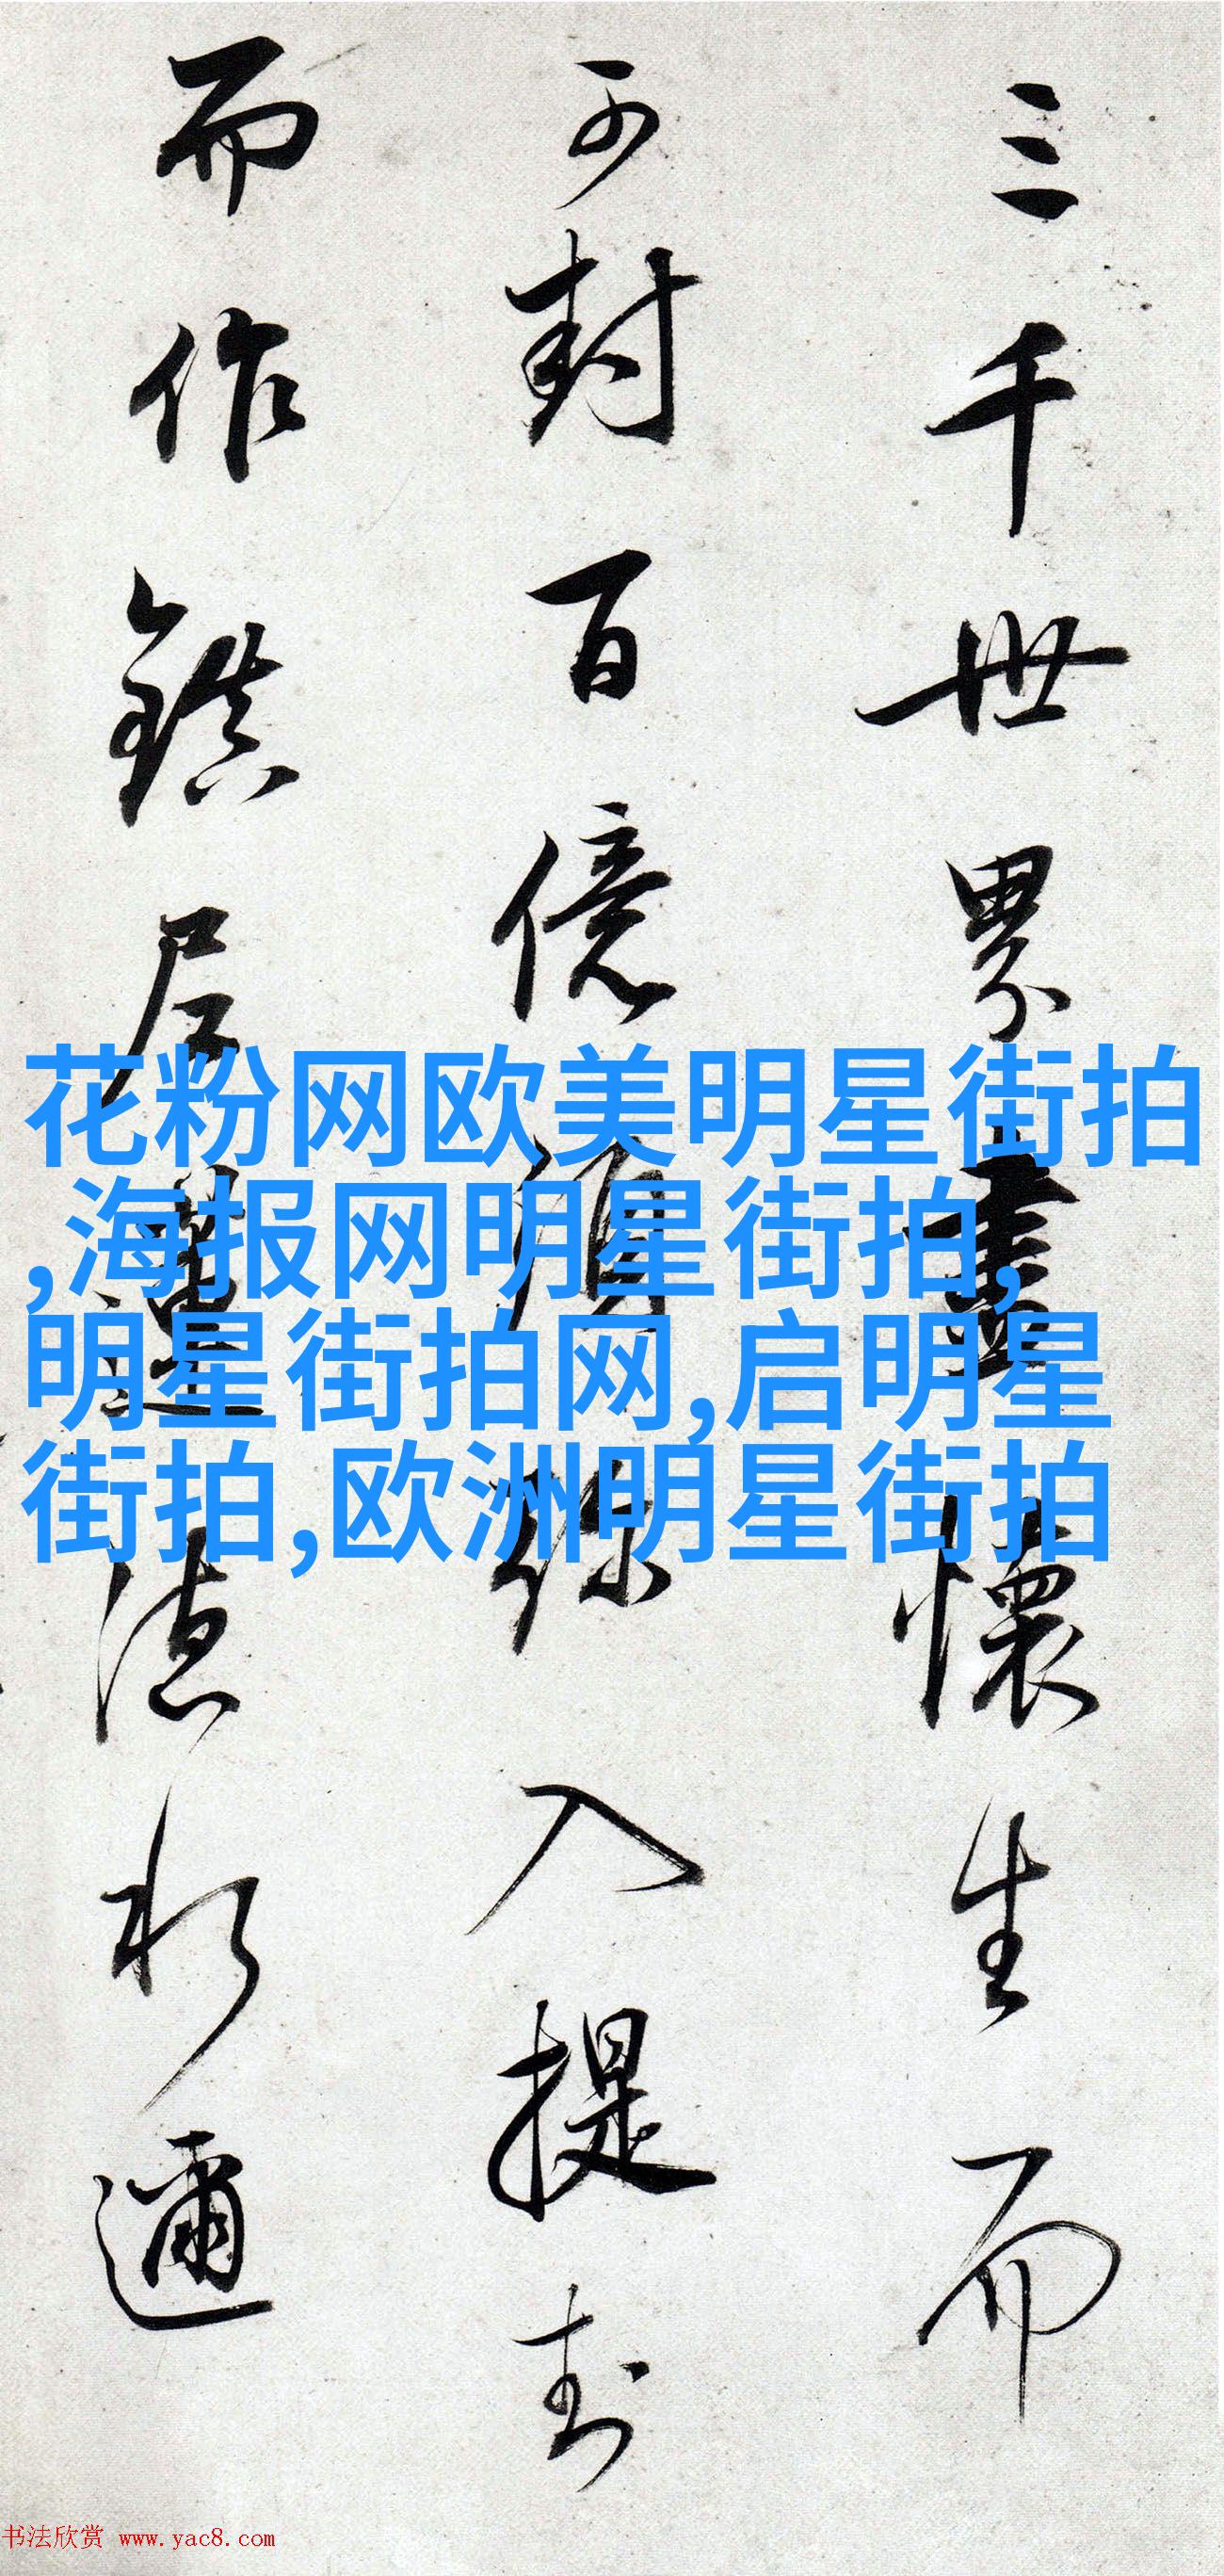 三千世界盡懷生而
可封百億須彌入提封
而作鎮居遵德水邇
花粉网欧美明星街拍
,海报网明星街拍,
明星街拍网,启明星
街拍,欧洲明星街拍
书法欣赏 www.yac8.com